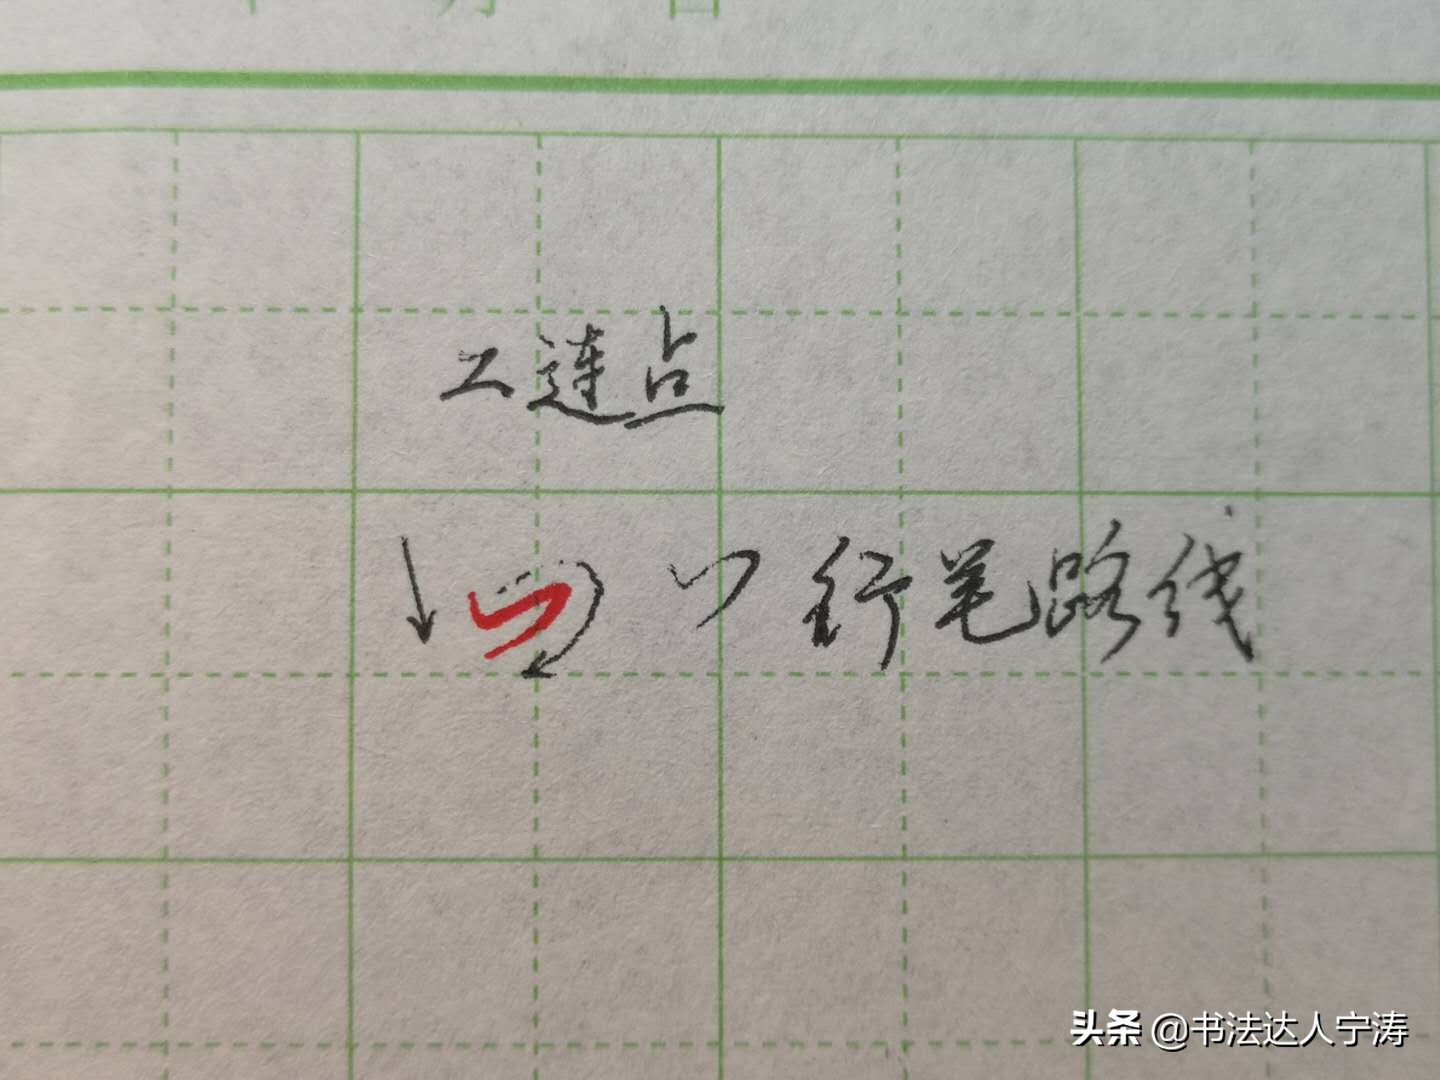 二连点
行笔路线
头条 @书法达人宁涛